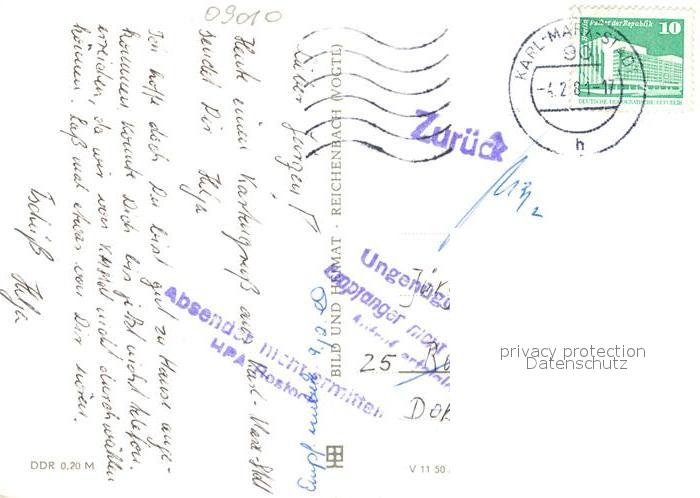 09010
Lieber Jürgen!
Heute einen Kartengruß aus Karl-Marx-Stadt
sendet Dir Helja
Ich hoffe doch Du bist gut zu Hause ange-
kommen konnte Dich bis jetzt nicht telefon.
erreichen, da wir von K.M.Stadt nicht durchwählen
können. Laß mal etwas von Dir hören.
Tschüß Helja
DDR 0,20 M
BILD UND HEIMAT · REICHENBACH (VOGTL)
V 11 50
Zurück
Absender nicht ermittelt
HPA Rostock
Empfänger nicht
KARL-MARX-STADT
90
-4.2.81-17
h
Berlin Palast der Republik
10
DEUTSCHE DEMOKRATISCHE REPUBLIK
25
privacy protection
Datenschutz